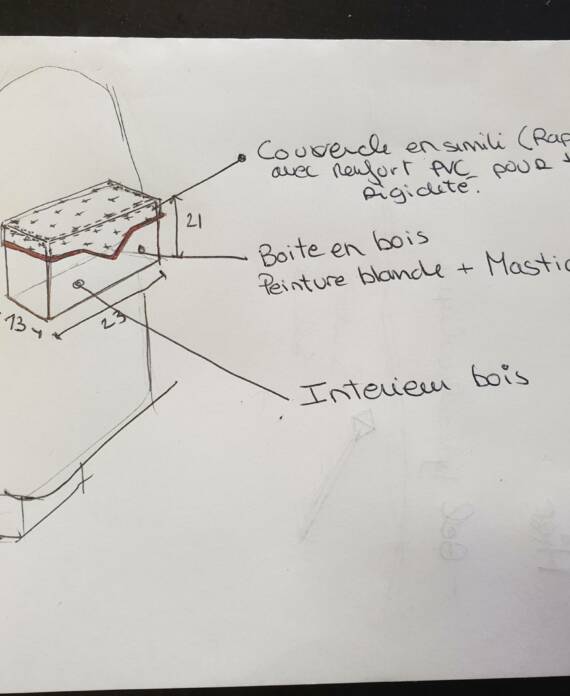 Couvercle en simili (Rap
avec renfort PVC pour +
Rigidité.
21
Boite en bois
Peinture blanche + Mastic
13
23
Interieur bois